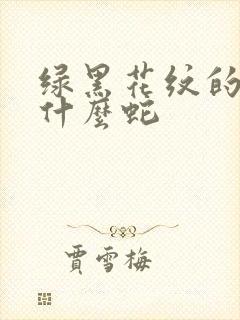 绿黑花纹的
什麼蛇
賈雪梅